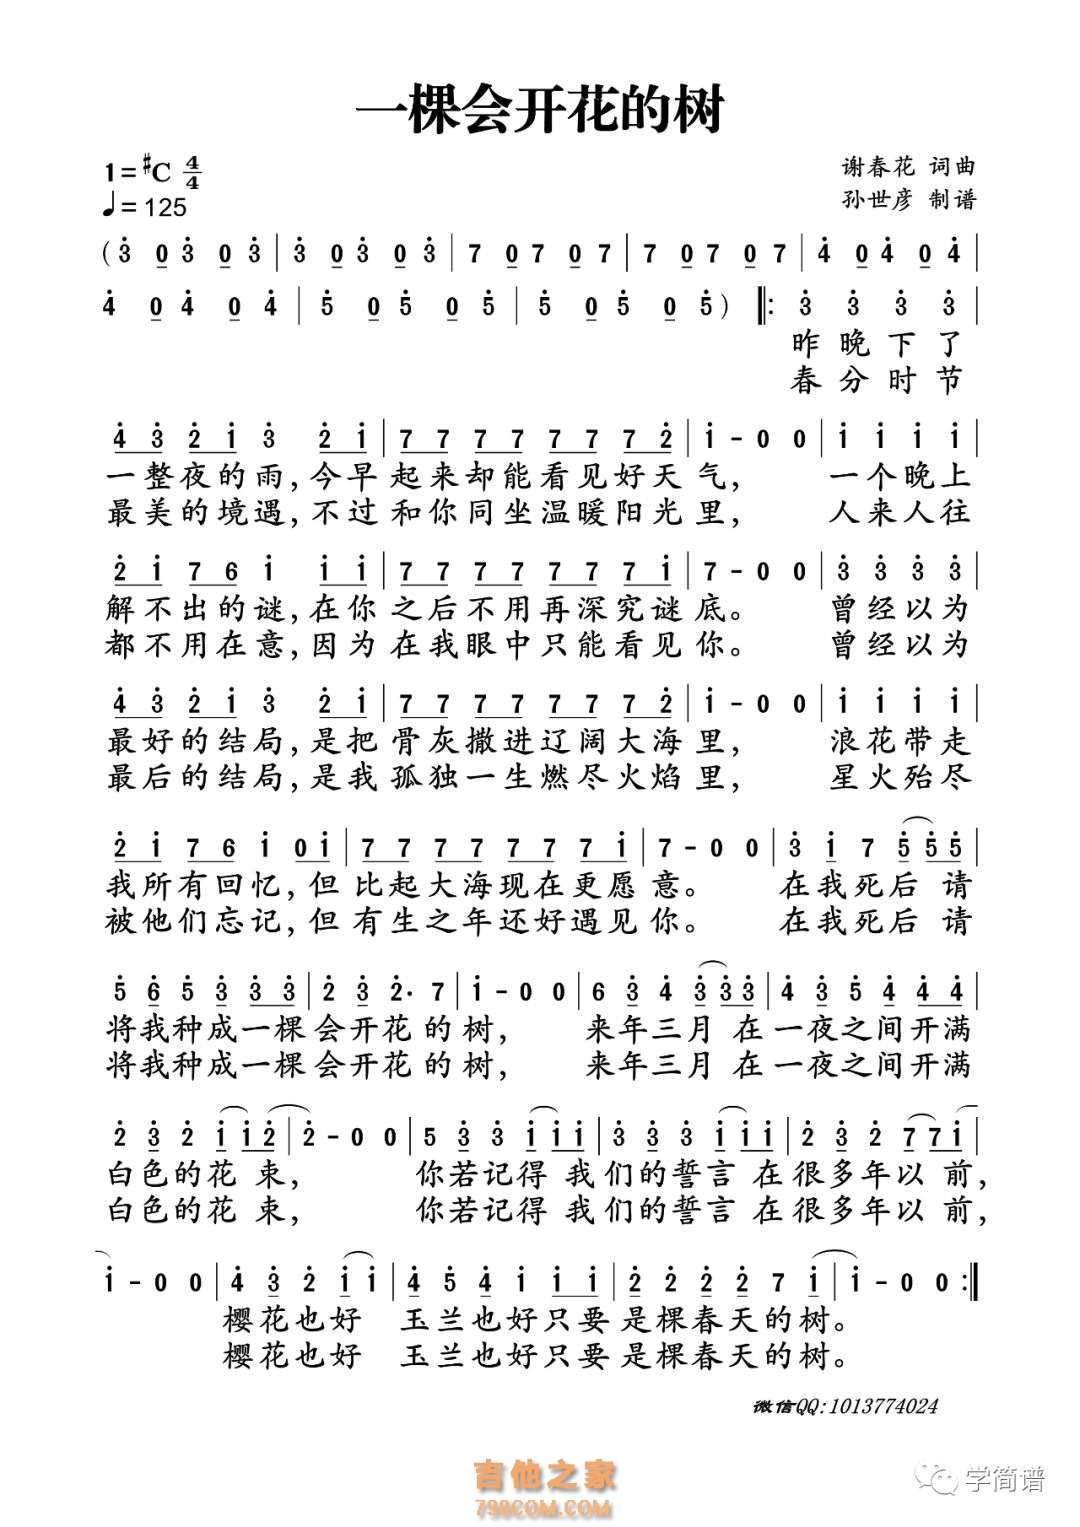 一棵会开花的树
1=#C 4/4
谢春花 词曲
♩=125
孙世彦 制谱
(3 0 3 0 3 | 3 0 3 0 3 | 7 0 7 0 7 | 7 0 7 0 7 | 4 0 4 0 4 |
4 0 4 0 4 | 5 0 5 0 5 | 5 0 5 0 5) ‖: 3 3 3 3 |
昨晚下了
春分时节
4 3 2 1 3 2 1 | 7 7 7 7 7 7 7 2 | 1 - 0 0 | 1 1 1 1 |
一整夜的雨,今早 起来却能看见好天气, 一个晚上
最美的境遇,不过 和你同坐温暖阳光里, 人来人往
2 1 7 6 1 1 1 | 7 7 7 7 7 7 7 1 | 7 - 0 0 | 3 3 3 3 |
解不出的谜,在你 之后不用再深究谜底。 曾经以为
都不用在意,因为 在我眼中只能看见你。 曾经以为
4 3 2 1 3 2 1 | 7 7 7 7 7 7 7 2 | 1 - 0 0 | 1 1 1 1 |
最好的结局,是把 骨灰撒进辽阔大海里, 浪花带走
最后的结局,是我 孤独一生燃尽火焰里, 星火殆尽
2 1 7 6 1 0 1 | 7 7 7 7 7 7 7 1 | 7 - 0 0 | 3 1 7 5 5 5 |
我所有回忆,但 比起大海现在更愿意。 在我死后 请
被他们忘记,但 有生之年还好遇见你。 在我死后 请
5 6 5 3 3 3 | 2 3 2· 7 | 1 - 0 0 | 6 3 4 3 3 3 | 4 3 5 4 4 4 |
将我种成一棵 会开花 的 树, 来年三月 在 一夜之间开满
将我种成一棵 会开花 的 树, 来年三月 在 一夜之间开满
2 3 2 1 1 2 | 2 - 0 0 | 5 3 3 1 1 1 | 3 3 3 1 1 1 | 2 3 2 7 7 1 |
白色的花 束, 你若记得 我 们的誓言 在 很多年以 前,
白色的花 束, 你若记得 我 们的誓言 在 很多年以 前,
1 - 0 0 | 4 3 2 1 1 | 4 5 4 1 1 1 | 2 2 2 2 7 1 | 1 - 0 0 :‖
樱花也好 玉兰也好只要 是棵春天的树。
樱花也好 玉兰也好只要 是棵春天的树。
微信QQ:1013774024
吉他之家
798COM.COM
学简谱